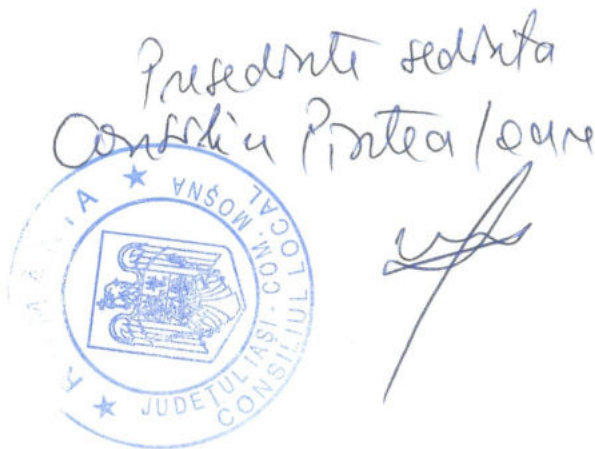 Presedinte sedinta
Consiliu Pintea Ioan
ROMANIA
JUDEȚUL IAȘI - COM. MOȘNA
CONSILIUL LOCAL